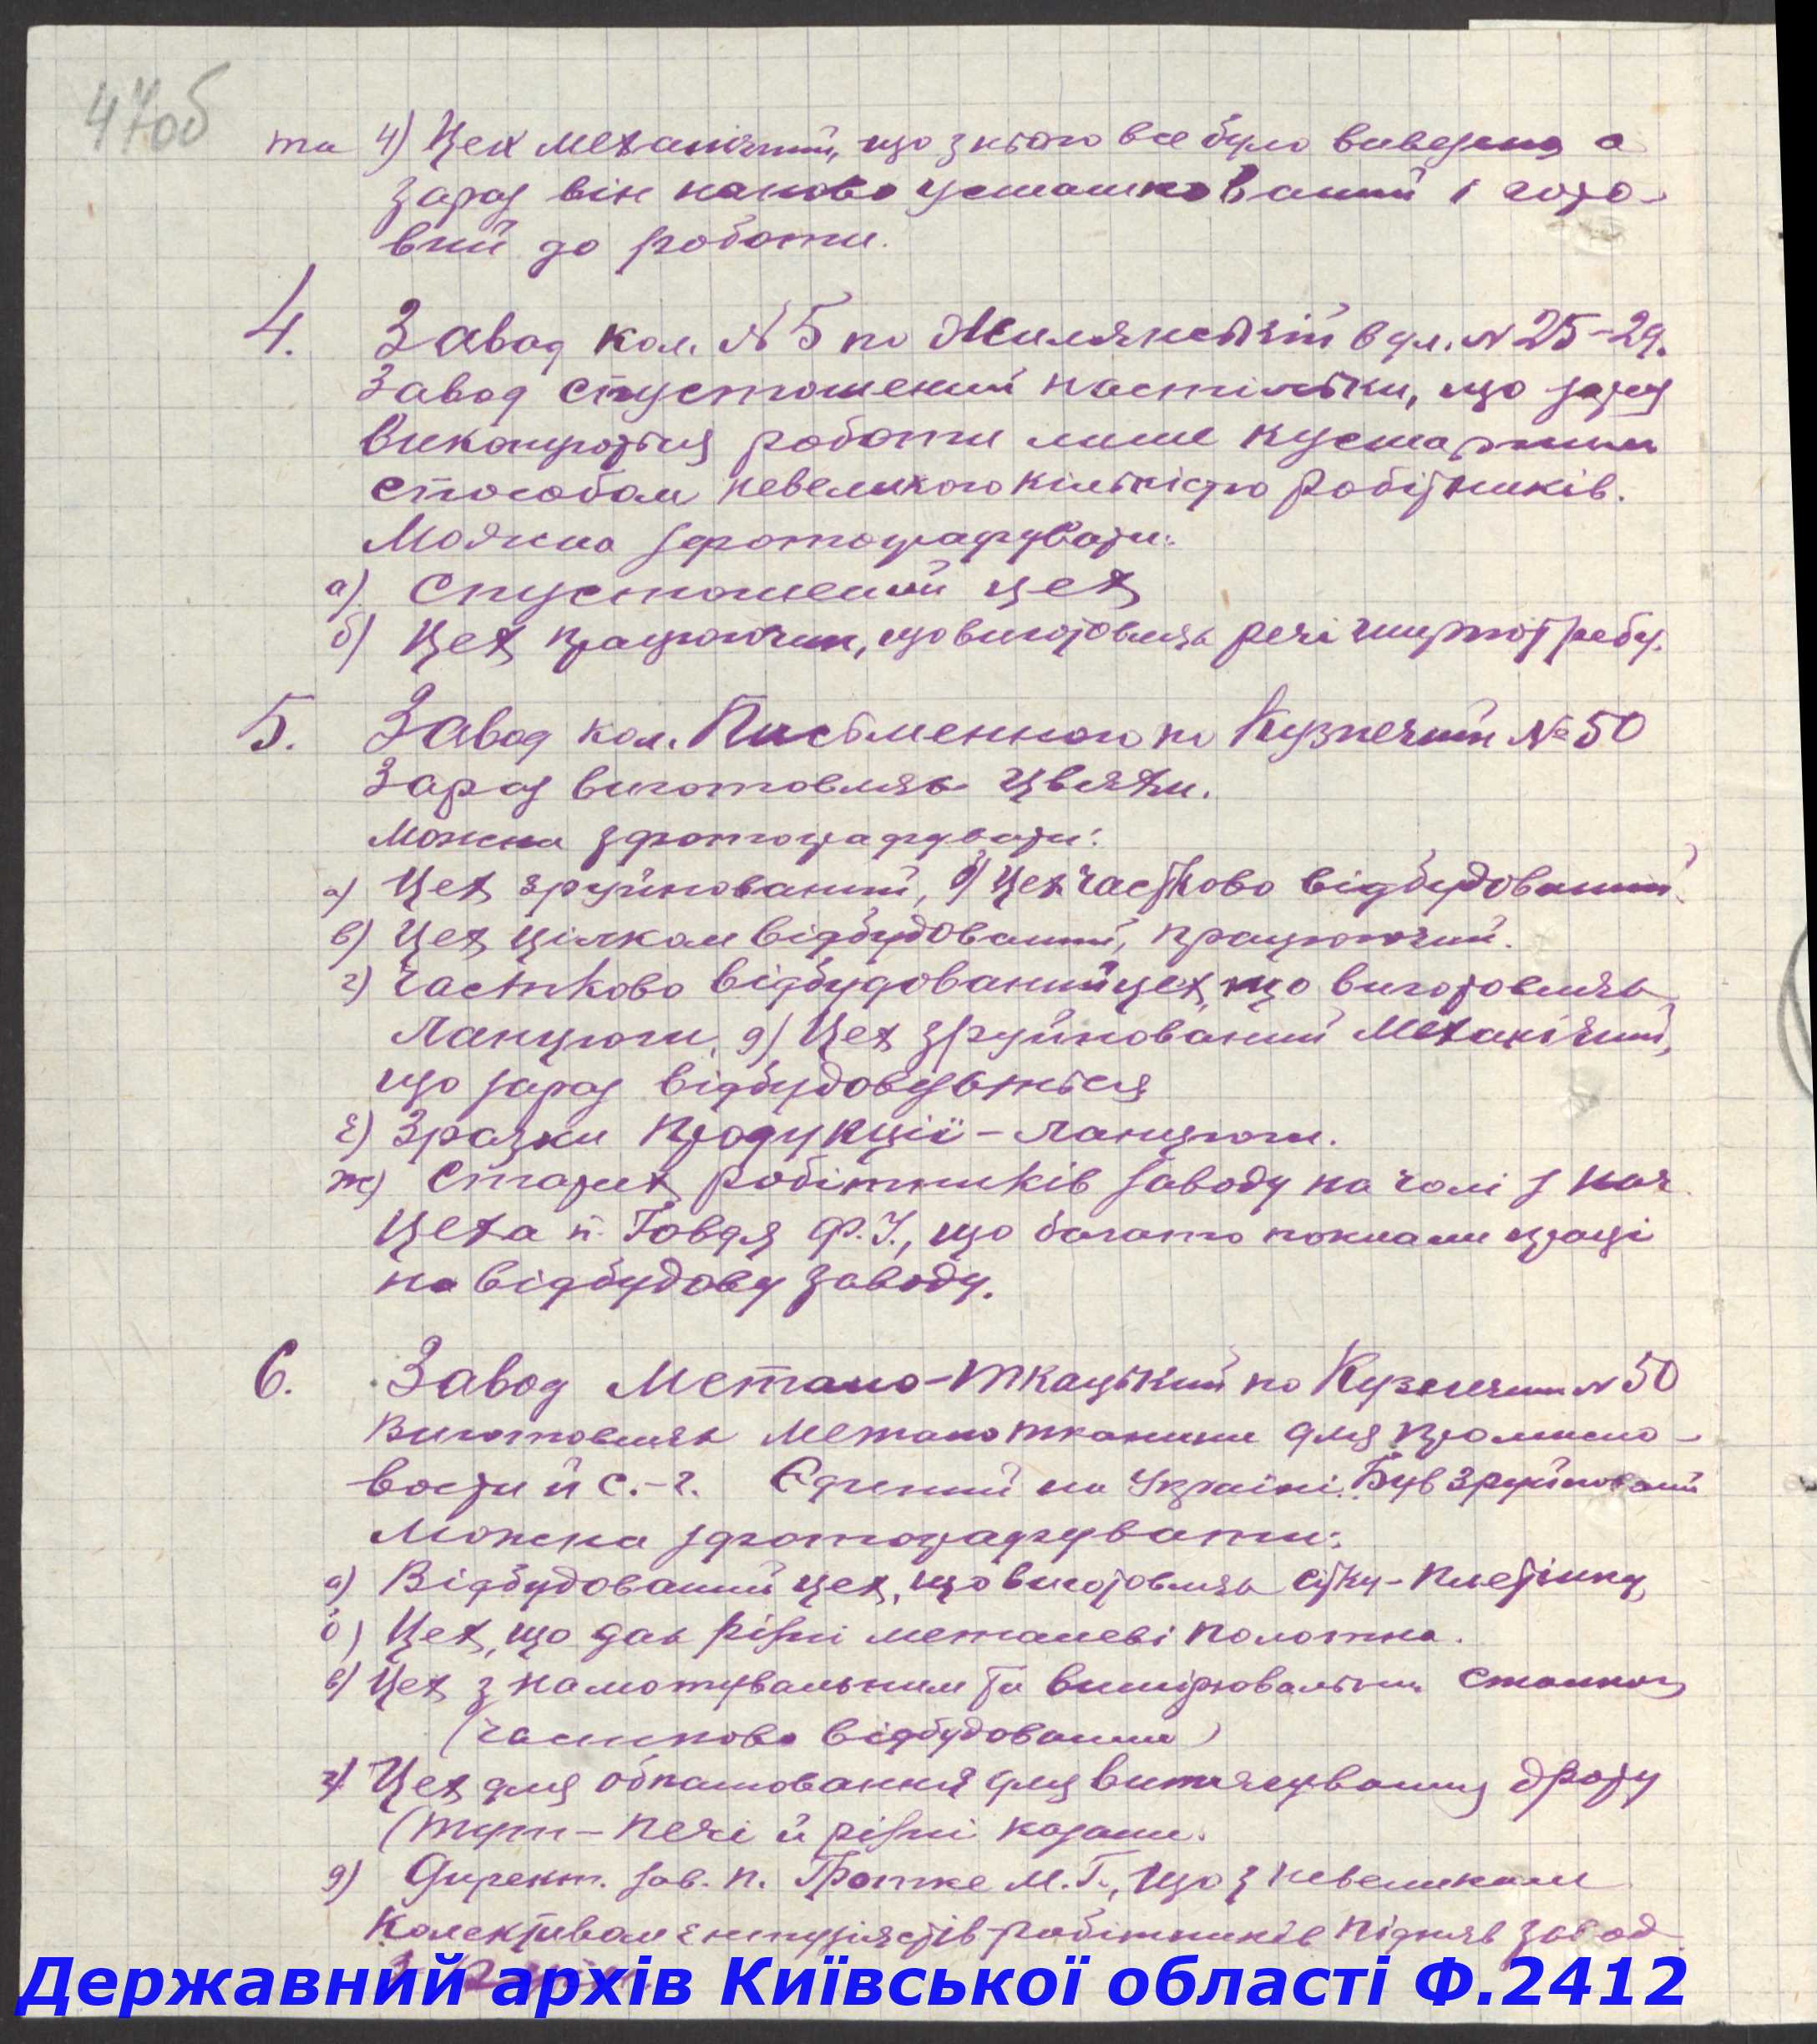 47об
та 4) Цех механічний, що з нього все було вивезено а
зараз він наново устаткований і гото-
вий до роботи.
4. Завод кол. № 5 по Жилянській вул. № 25-29.
Завод спустошений настільки, що зараз
виконуються роботи лише кустарним
способом невеликою кількістю робітників.
Можна зфотографувати:
а) Спустошений цех
б) Цех працюючий, що виготовляє речі ширпотребу.
5. Завод кол. Письменного по Кузнечній № 50
Зараз виготовляє цвяхи.
Можна зфотографувати:
а) Цех зруйнований, б) Цех частково відбудований.
в) Цех цілком відбудований, працюючий.
г) Частково відбудований цех, що виготовляє
ланцюги, д) Цех зруйнований механічний,
що зараз відбудовується
е) Зразки продукції - ланцюги.
ж) Старих робітників заводу на чолі з нач.
цеха п. Говдя Ф.І., що багато поклали праці
на відбудову заводу.
6. Завод Метало-ткацький по Кузнечній № 50
Виготовляє металотканини для промисло-
вости й с.-г. Єдиний на Україні. Був зруйнований
Можна зфотографувати:
а) Відбудований цех, що виготовляє сітку-плетінку
б) Цех, що дає різні металеві полотна.
в) Цех з намотувальним та вимірювальним станком
(частково відбудований)
г) Цех для обпалювання для витягування дроту
(тут - печі й різні казани.
д) Директ. зав. п. Гротке М.Г., що з невеликим
колективом ентузіястів-робітників підняв завод
з руїн.
Державний архів Київської області Ф.2412